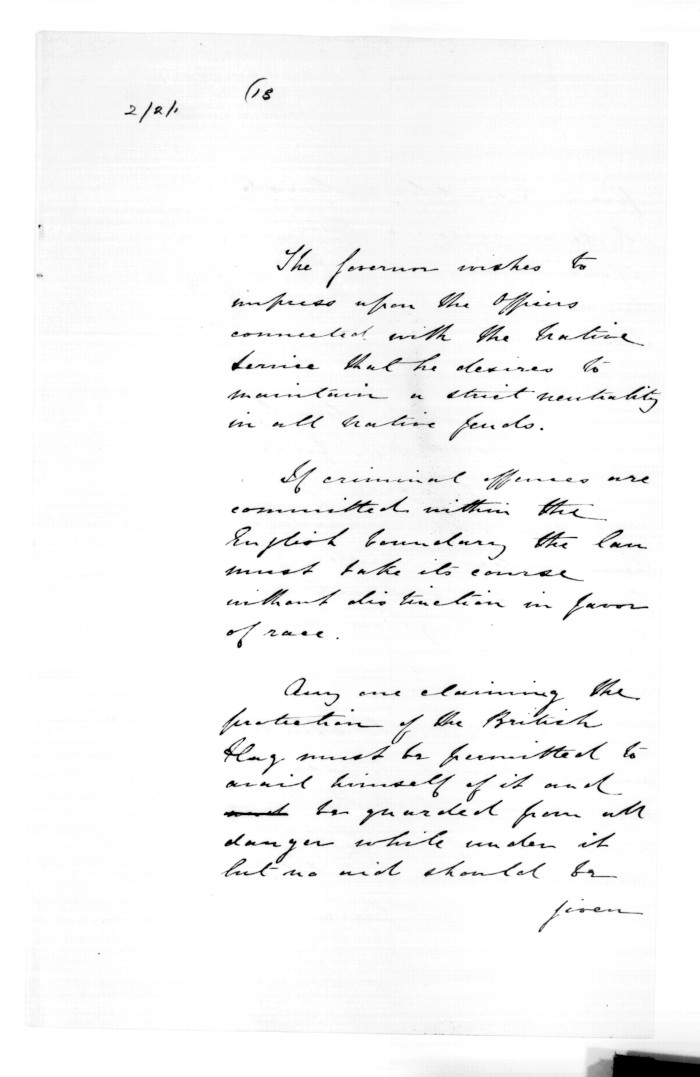 2/2/1 (13
The Governor wishes to
impress upon the Officers
connected with the Native
Service that he desires to
maintain a strict neutrality
in all native feuds.
If criminal offences are
committed within the
English boundary the law
must take its course
without distinction in favor
of race.
Any one claiming the
protection of the British
Flag must be permitted to
avail himself of it and
must be guarded from all
danger while under it
but no aid should be
given